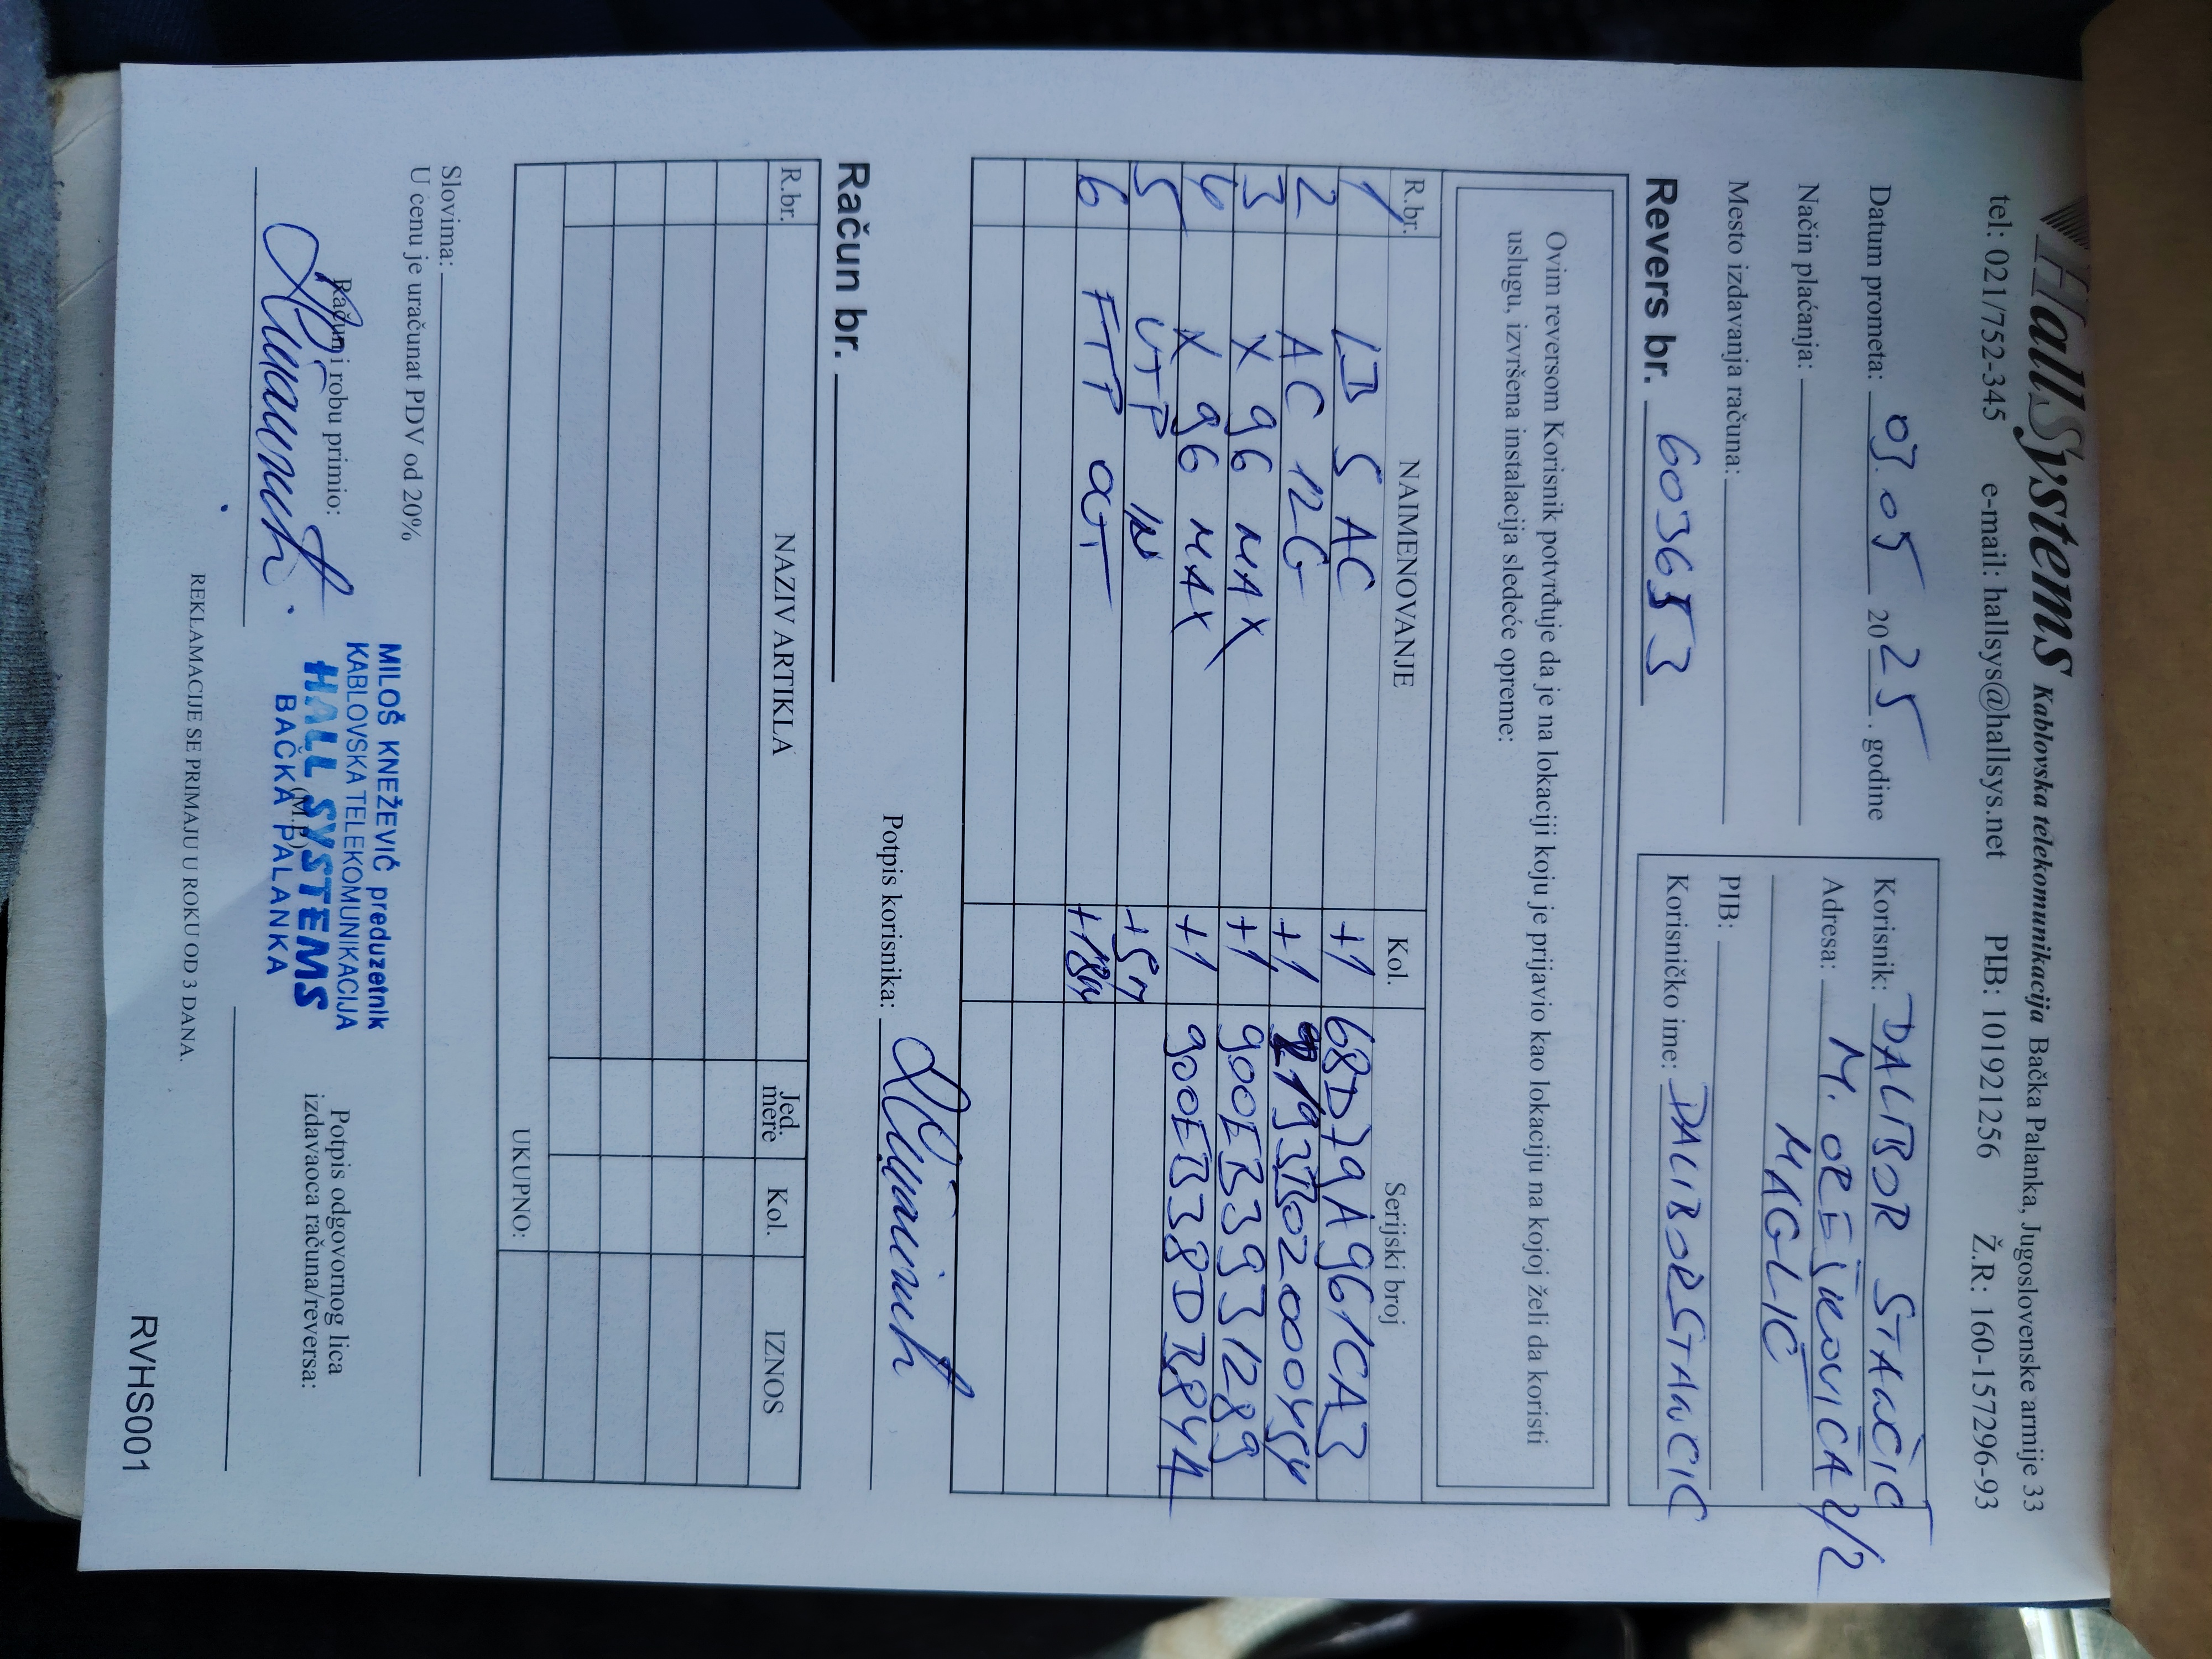 HallSystems Kablovska telekomunikacija Bačka Palanka, Jugoslovenske armije 33
tel: 021/752-345 e-mail: hallsys@hallsys.net PIB: 101921256 Ž.R.: 160-157296-93
Datum prometa: 09.05 2025. godine
Način plaćanja:
Mesto izdavanja računa:
Korisnik: DALIBOR STANČIĆ
Adresa: M. OREŠKOVIĆA 2/2
MAGLIĆ
PIB:
Korisničko ime: DALIBORSTANCIC
Revers br. 603653
Ovim reversom Korisnik potvrđuje da je na lokaciji koju je prijavio kao lokaciju na kojoj želi da koristi
uslugu, izvršena instalacija sledeće opreme:
R.br. NAIMENOVANJE Kol. Serijski broj
1 LB 5 AC +1 68D79A961CA3
2 AC 12G +1 2193B02000454
3 X 96 MAX +1 900EB3931289
4 X 96 MAX +1 900EB38DB844
5 UTP IN +5m
6 FTP OUT +18m
Potpis korisnika:
Račun br.
R.br. NAZIV ARTIKLA Jed. mere Kol. IZNOS
UKUPNO:
Slovima:
U cenu je uračunat PDV od 20%
Račun i robu primio:
MILOŠ KNEŽEVIĆ preduzetnik
KABLOVSKA TELEKOMUNIKACIJA
HALL SYSTEMS
(M.P.)
BAČKA PALANKA
Potpis odgovornog lica
izdavaoca računa/reversa:
REKLAMACIJE SE PRIMAJU U ROKU OD 3 DANA.
RVHS001